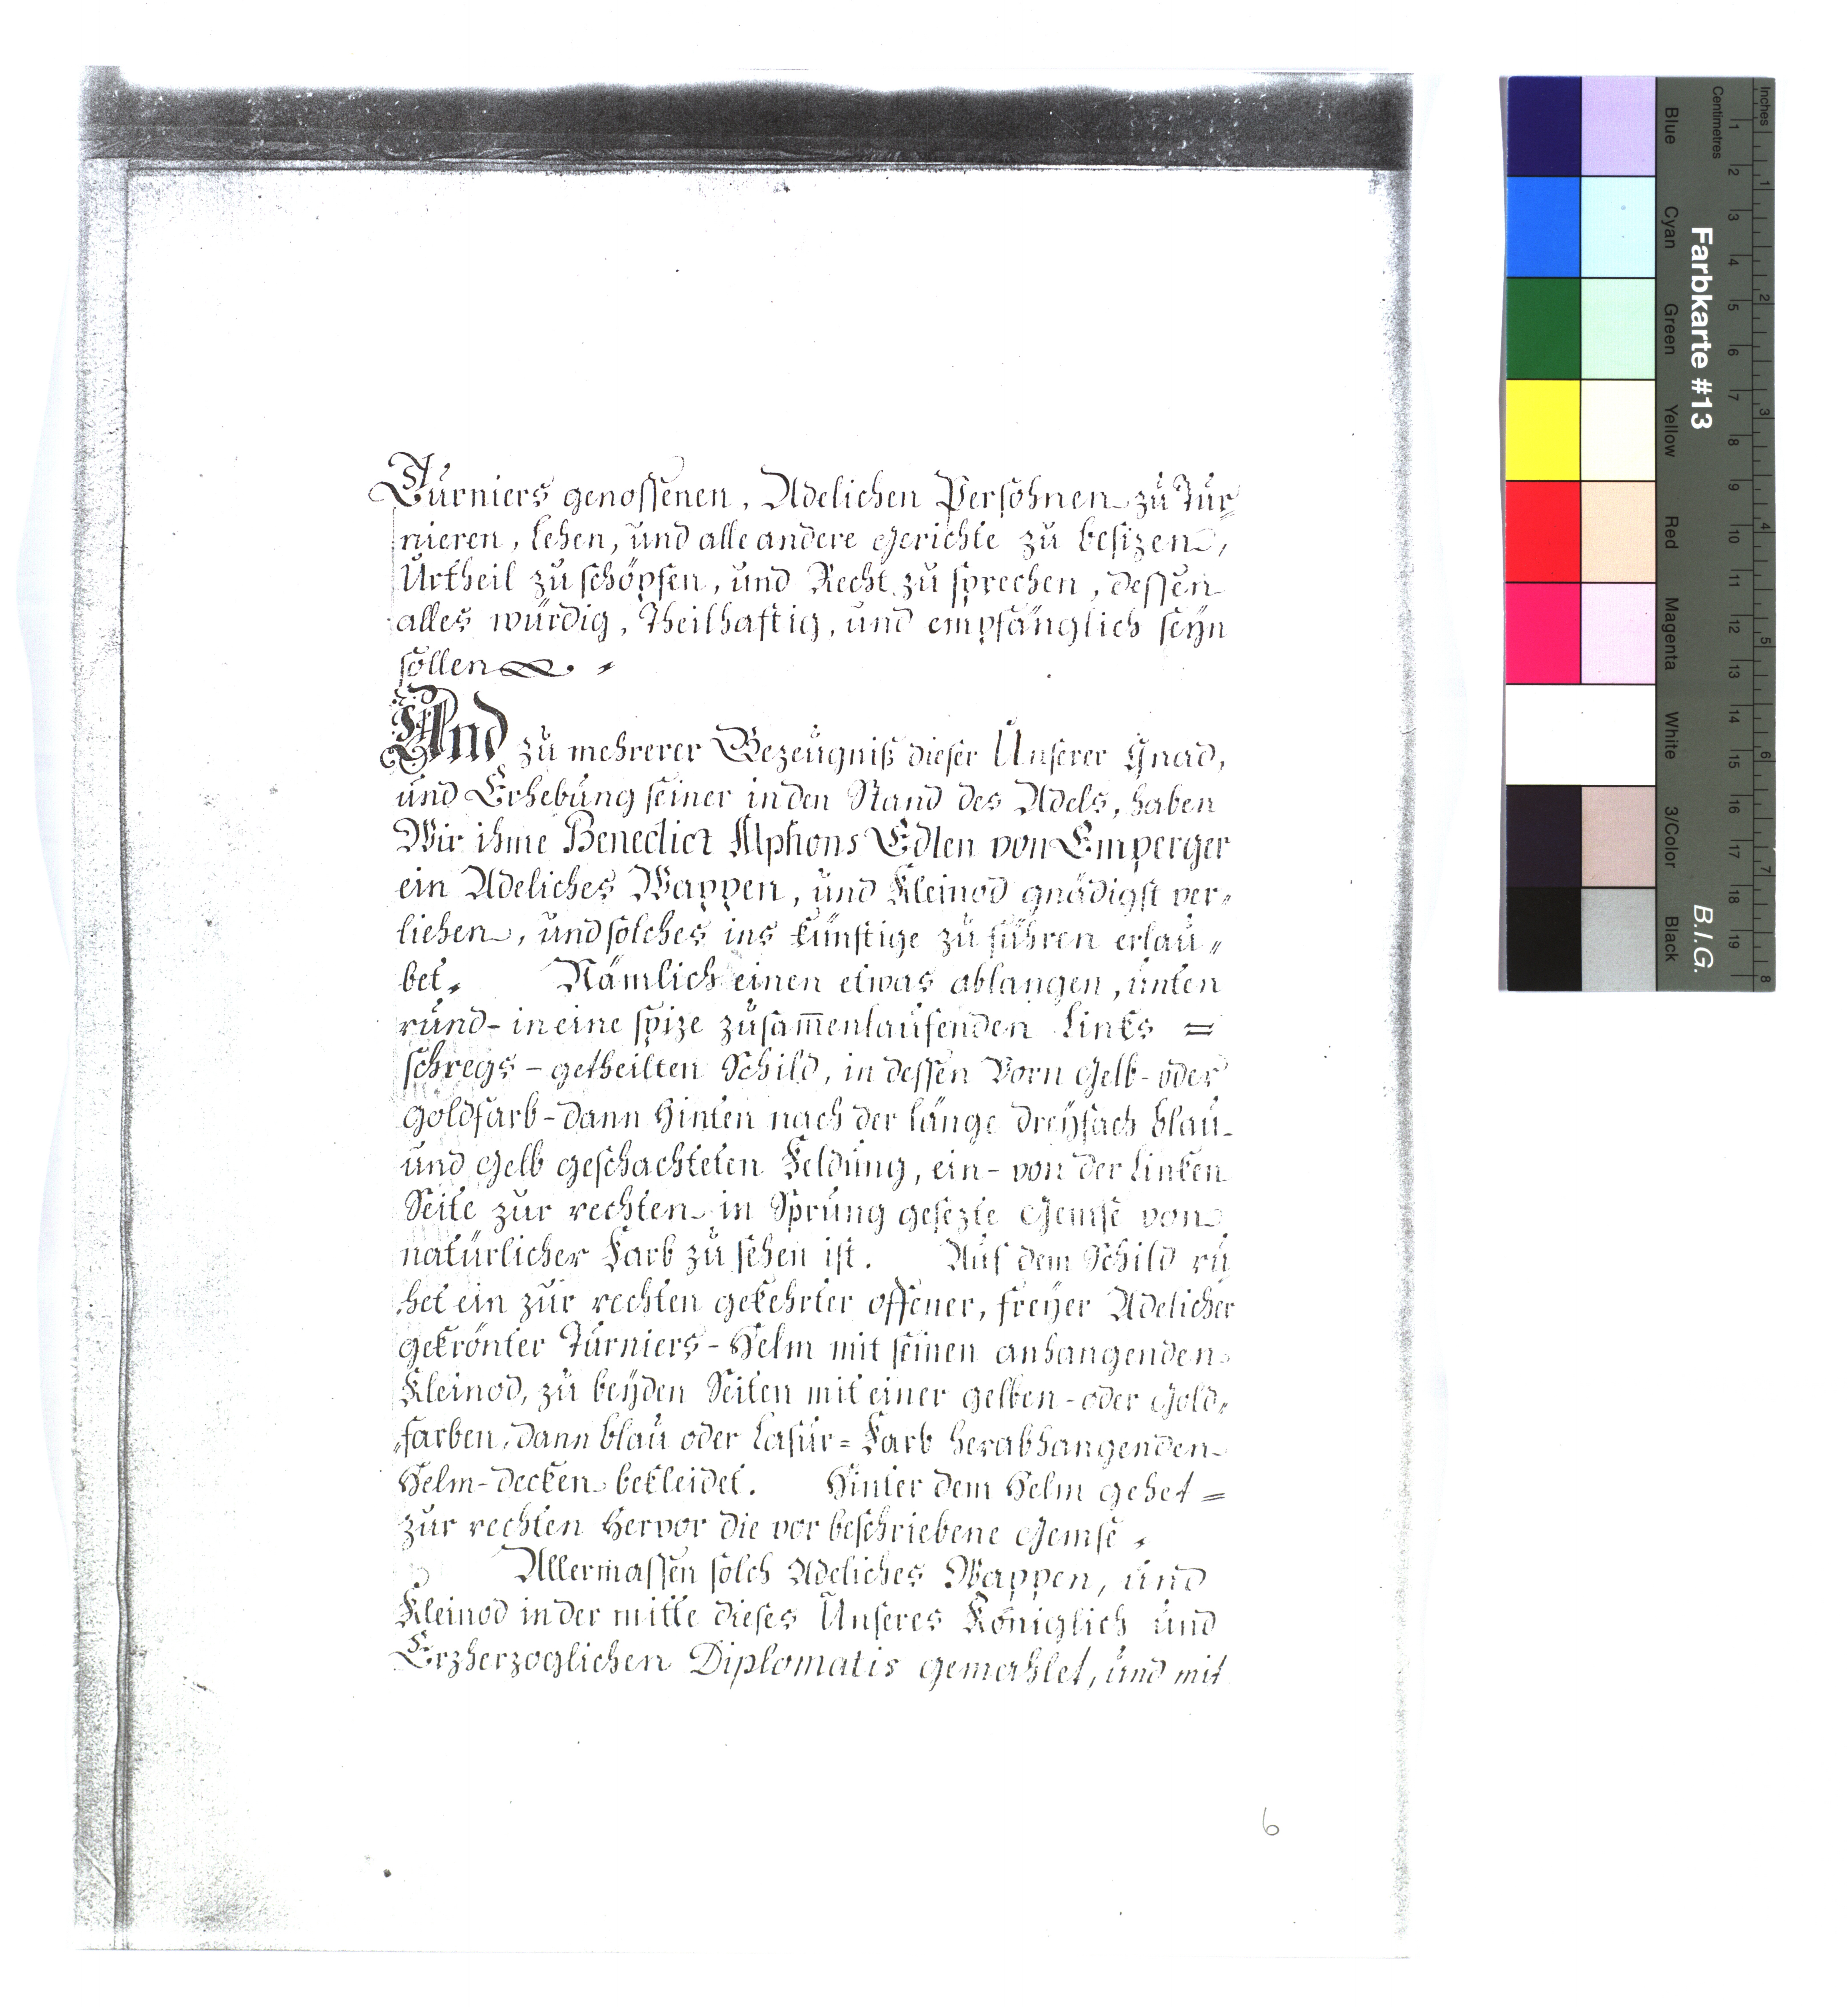 Turniers genossenen, Adelichen Persohnen zu Tur-
nieren, Lehen, und alle andere Gerichte zu besizen,
Urtheil zu schöpfen, und Recht zu sprechen, dessen
alles würdig, Theilhaftig, und empfänglich seyn
sollen
Und zu mehrerer Bezeügniß dieser Unserer Gnad,
und Erhebung seiner in den Stand des Adels, haben
Wir ihme Benedict Alphons Edlen von Emperger
ein Adeliches Wappen, und Kleinod gnädigst ver-
liehen, und solches ins künftige zu führen erlau-
bet. Nämlich einen etwas ablangen, unten
rund- in eine spize zusam̅enlaufenden Links =
schregs - getheilten Schild, in dessen Vorn Gelb- oder
Goldfarb- dann Hinten nach der länge dreyfach blau-
und Gelb geschachteten Feldung, ein- von der Linken
Seite zur rechten in Sprung gesezte Gemse von
natürlicher Farb zu sehen ist. Auf dem Schild ru
het ein zur rechten gekehrter offener, freyer Adelicher
gekrönter Turniers- Helm mit seinen anhangenden
Kleinod, zu beyden Seiten mit einer gelben- oder Gold-
farben, dann blau oder Lasur= Farb herabhangenden
Helm- decken bekleidet. Hinter dem Helm gehet =
zur rechten Hervor die vor beschriebene Gemse.
Allermassen solch Adeliches Wappen, und
Kleinod in der mitte dieses Unseres Königlich und
Erzherzoglichen Diplomatis gemahlet, und mit
6
Inches
Centimetres
1 2 3 4 5 6 7 8 9 10 11 12 13 14 15 16 17 18 19
1 2 3 4 5 6 7 8
Blue Cyan Green Yellow Red Magenta White 3/Color Black
Farbkarte #13
B.I.G.